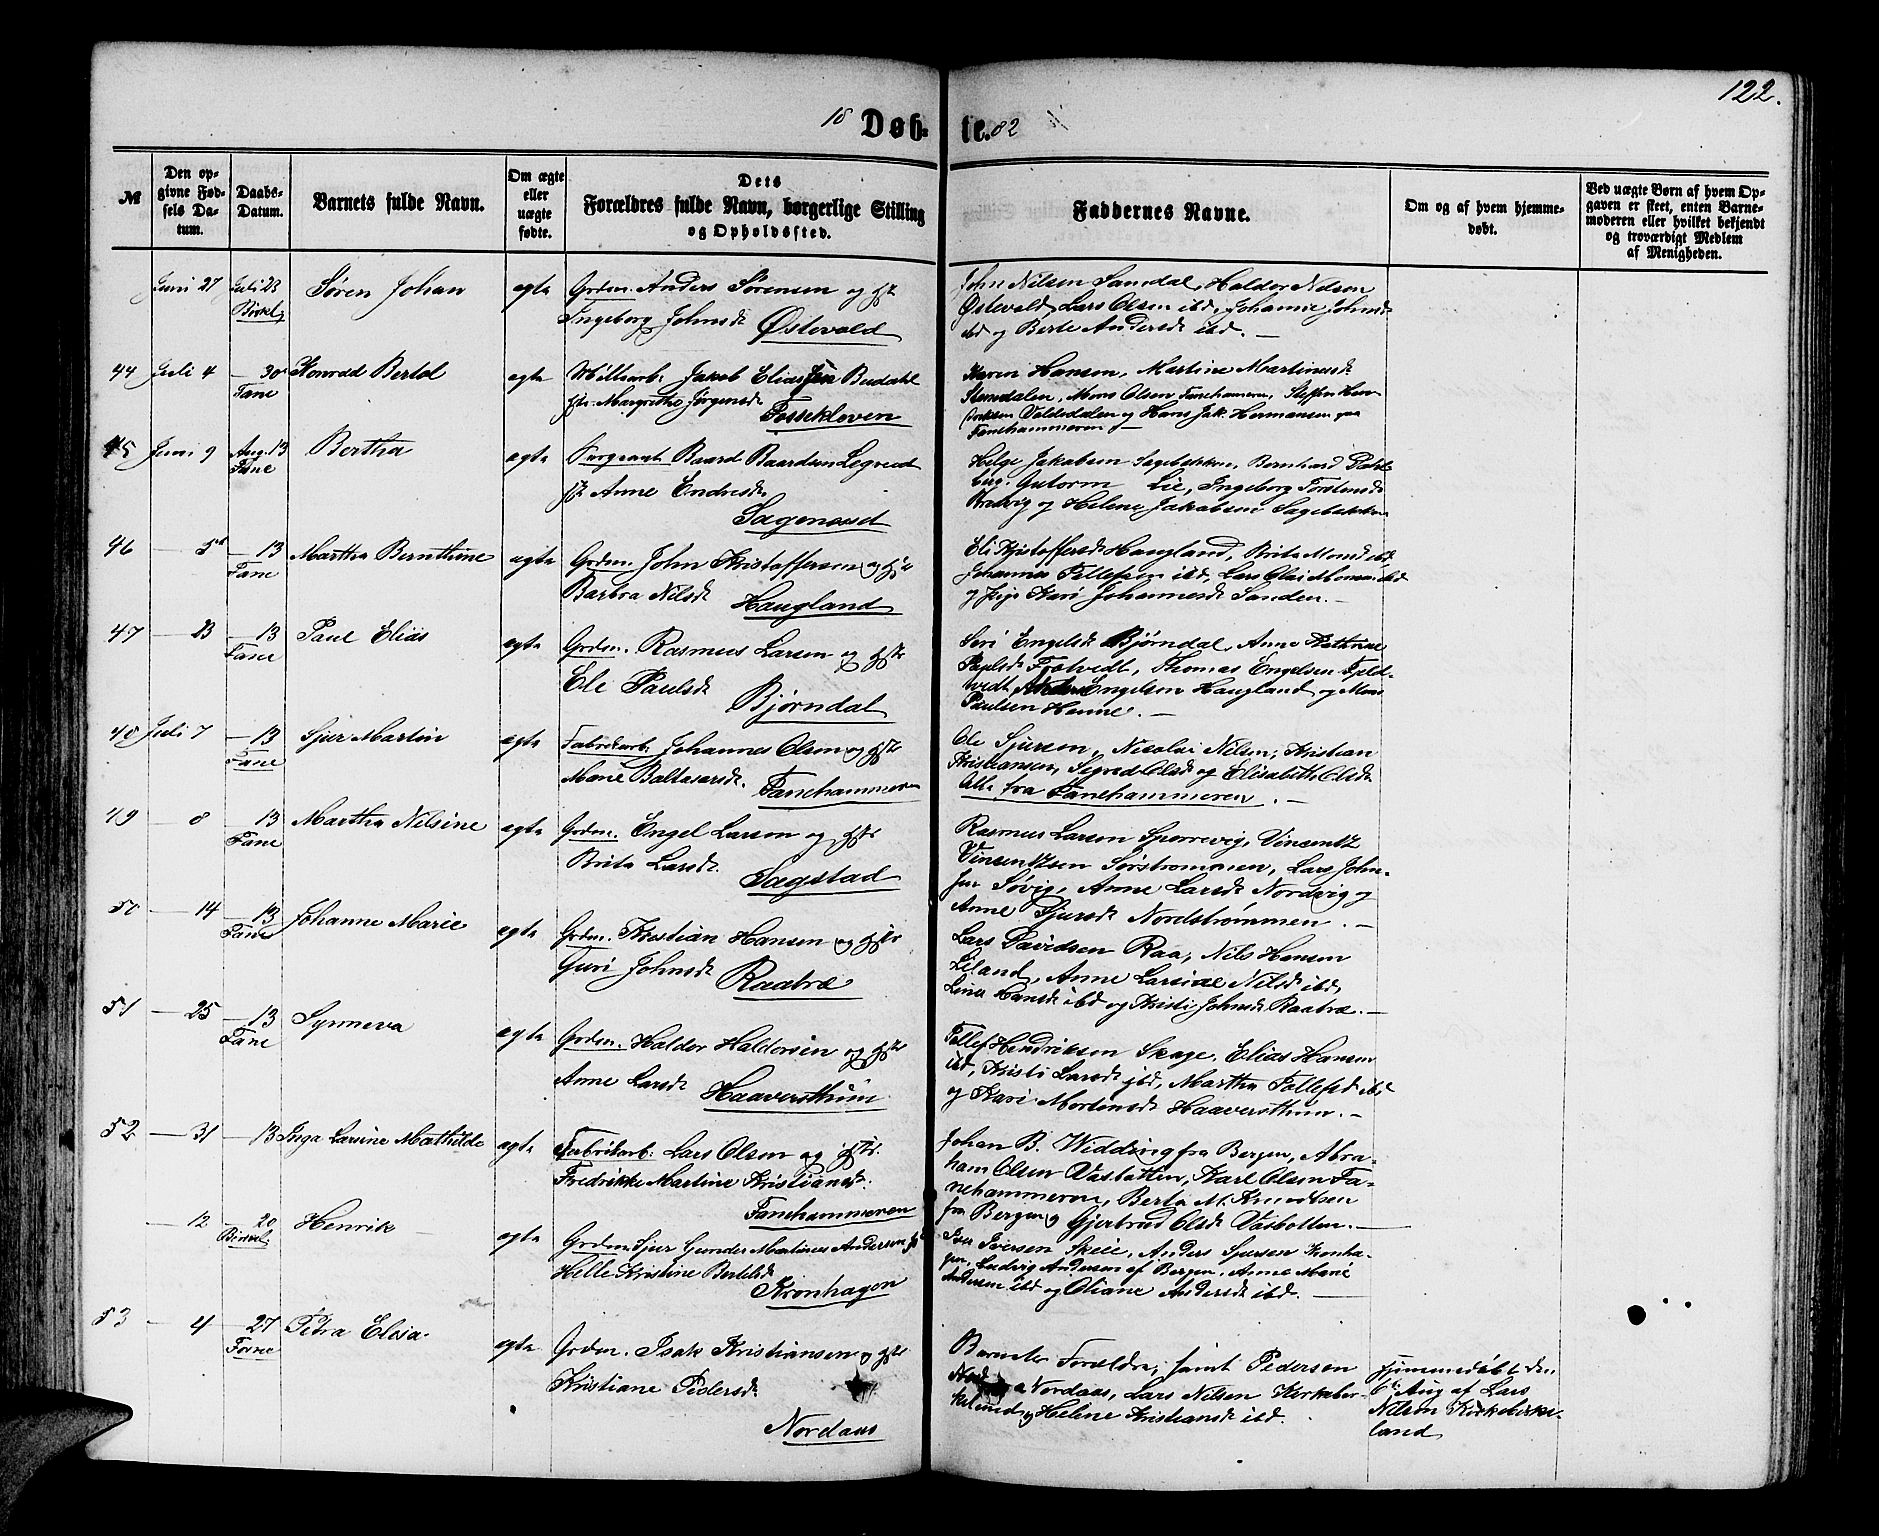 122.
18 Døb- te. 82
№
Den op-
givne Fød-
sels Da-
tum.
Daabs-
Datum.
Barnets fulde Navn.
Om ægte
eller
uægte
fødte.
Dets
Forældres fulde Navn, borgerlige Stilling
og Opholdssted.
Faddernes Navne.
Om og af hvem hjemme-
døbt.
Ved uægte Børn af hvem Op-
gaven er skeet, enten Barne-
moderen eller hvilket bekjendt
og troværdigt Medlem
af Menigheden.
Juni 27 Juli 23 Søren Johan egte Grdm. Anders Sørensen og Hst
Birkel.
Ingeborg Johnsdt Østevold
John Nilsen Samdal, Haldor Nilsen
Østevold, Lars Olsen ibd, Johanne Johnsd
ibd og Berte Andersdt ibd. —
44 Juli 4 — 30 Konrad Bertol egte Jakob Elias Budahl
Fane
Margrethe Jørgensdt
Fossekleven
Karen Hansen, Martine Martinusdt
Stensdalen, Mons Olsen Fanehammeren, Steffen Hen-
driksen Valdedalen og Hans Jak. Hermansen
Fanehammeren —
45 Juni 9 Aug. 13 Bertha egte Sergeant Baard Baardsen Legreid
Fane
Anne Endresdt
Sagenæsed
Helge Jakobsen Sagebakken, Bernhard Dahl
berg, Gutorm Lie, Ingeborg Torstensdt
og Helene Jakobsen Sagebakken
46 — 5 — 13 Martha Bernthine egte Grdm. John Kristoffersen og Hst
Fane
Barbra Nilsdt Haugland
Eli Kristoffersdt Haugland, Brita Monsd ibd,
Johannes Tollefsen ibd, Lars Olai Monsen ibd
og Pige Kari Johannesdt Sanden. —
47 — 23 — 13 Paul Elias egte Grdm. Rasmus Larsen og Hstr
Fane
Eli Paulsdt
Bjørndal
Siri Engelsdt Bjørndal, Anne Kathrine
Paulsdt Fotvedt, Thomas Engelsen Tveld-
vedt, Anders Engelsen Haugland og Mons
Paulsen Henne. —
48 Juli 7 — 13 Sjur Martin egte Fabrikarb. Johannes Olsen og Hstr
Fane
Marie Baltasarsdt. Fanehammeren
Ole Sjursen, Nicolai Nilsen, Kristian
Kristiansen, Sigred Olsdt og Elisabeth Olsdt
Alle fra Fanehammeren. —
49 — 8 — 13 Martha Nilsine egte Grdm. Engel Larsen og Hstr
Fane
Brita Larsdt.
Sagstad
Rasmus Larsen Sporrevig, Vincentz
Vincentzen Sørstrømonen, Lars John-
sen Søvig, Anne Larsdt Nordvig og
Anne Sjursdt Nordstrømmen. —
50 — 14 — 13 Johanne Marie egte Grdm. Kristian Hansen og Hstr
Fane
Guri Johnsdt
Raabræ
Lars Davidsen Raa, Nils Hansen
Liland, Anne Larsine Nilsdt ibd,
Lina Hansdt ibd og Kristi Johnsdt Raabræ. —
51 — 25 — 13 Synneva egte Grdm. Haldor Haldorsen og Hstr
Fane
Anne Larsdt Haaversthun
Tollef Hendriksen Skage, Elias Hansen
ibd, Kristi Larsdt ibd, Martha Tollefsd ibd
og Kari Mortensdt Haaversthun. —
52 — 31 — 13 Inga Larine Mathilde egte Fabrikarb. Lars Olsen og Hstr.
Fredrikke Martine Kristiansdt.
Fanehammeren
Johan B. Widding fra Bergen, Abra-
ham Olsen Vasbotten, Karl Olsen Fa-
nehammeren, Berta M. Knudtsen
fra Bergen og Gjertrud Olsdt Vasbotten. —
— 12 — 20 Henrik egte Grdm. Sjur Gunder Martinus Andersen
Birkel.
Helle Kristine Bertelsdt
Kronhagen
Iver Iversen Skeie, Anders Sjursen Kronha-
gen, Ludvig Andersen af Bergen, Anne Marie
Andersen ibd og Oliane Andersdt ibd. —
53 — 4 — 27 Petra Elisa. egte Grdm. Isak Kristiansen og Hstr
Fane
Kristiane Pedersdt
Nordaas
Barnets Forældre, samt Pedersen
Nordaas, Lars Nilsen Kirkebir-
keland og Helene Kristiansdt ibd.
Hjemmedøbt den
6te Aug af Lars
Nilsen Kirkebirke-
land